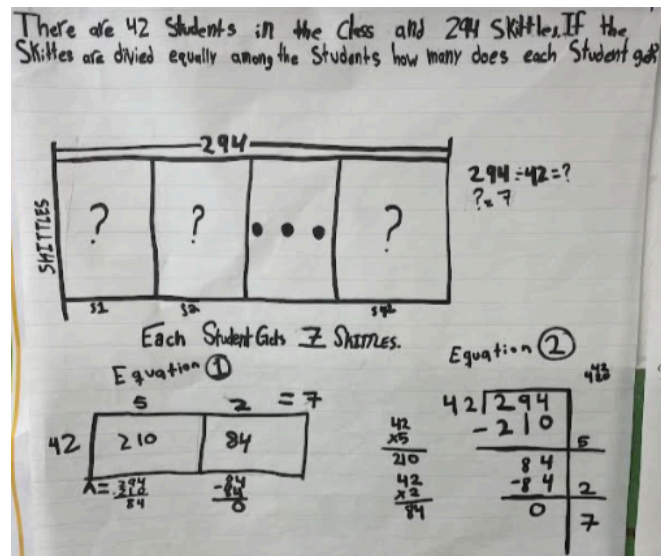 There are 42 Students in the Class and 294 Skittles. If the
Skittles are divied equally among the Students how many does each Student get?
294
294 ÷ 42 = ?
? = 7
SKITTLES
? ? • • • ?
S1 S2 S42
Each Student Gets 7 Skittles.
Equation 1
5 2 = 7
42 210 84
A=
210
84
-84
84
0
42
x5
210
42
x2
84
Equation 2
42 294
-210 5
84
-84 2
0
7